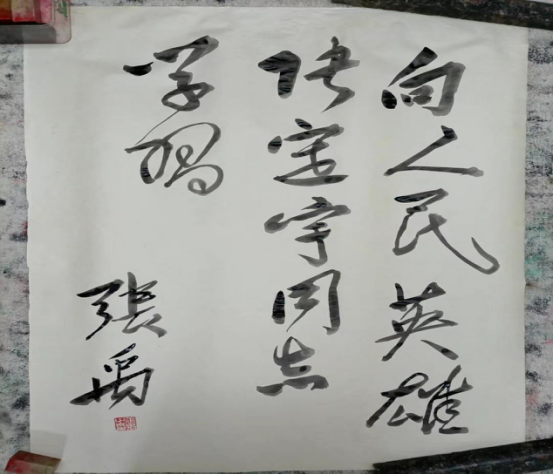 向人民英雄
张定宇同志
学习
張禹